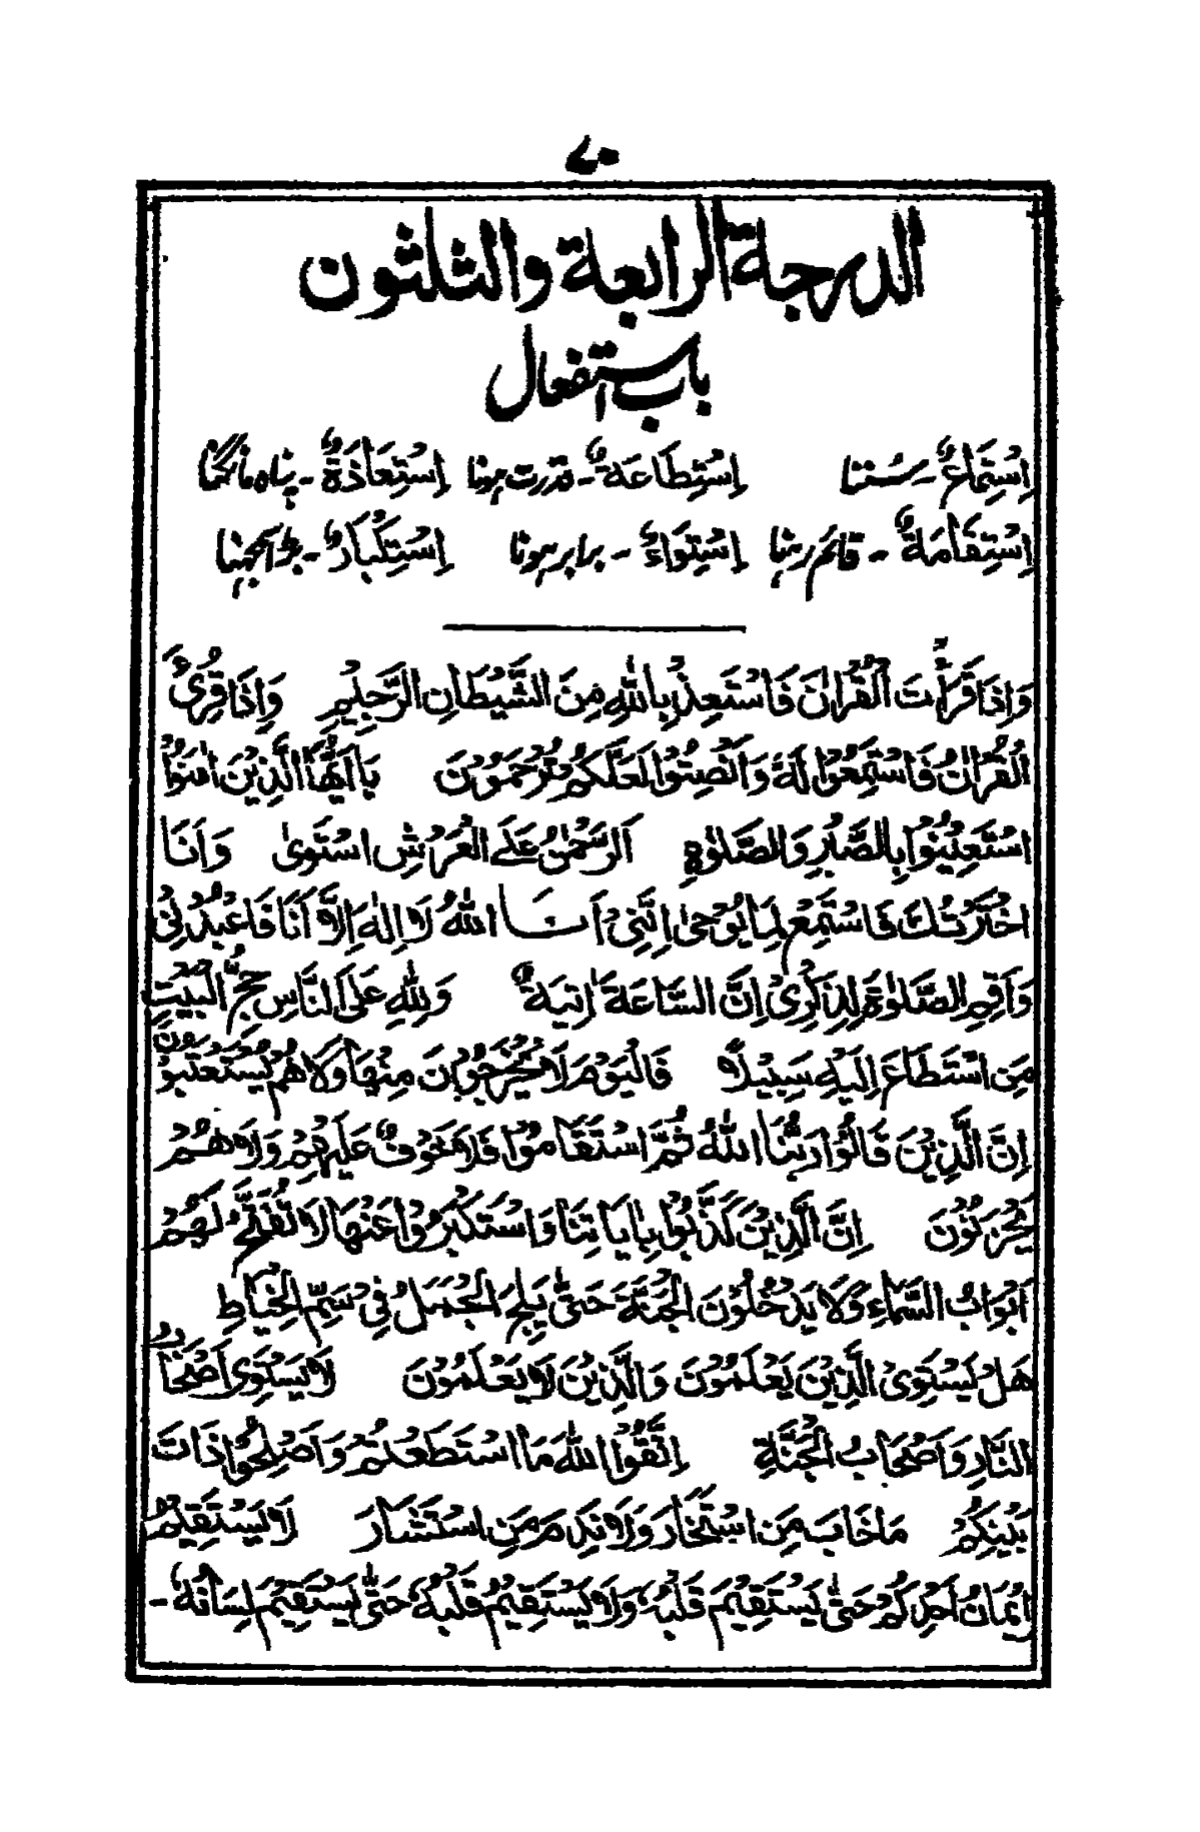 ۷۰
الدرجة الرابعة والثلثون
باب استفعال
اِسْتِمَاعٌ ۔ سُننا اِسْتِطَاعَةٌ ۔ قدرت ہونا اِسْتِعَاذَةٌ ۔ پناہ مانگنا
اِسْتِقَامَةٌ ۔ قائم رہنا اِسْتِوَاءٌ ۔ برابر ہونا اِسْتِكْبَارٌ ۔ بڑا سمجھنا
وَاِذَا قَرَأْتَ الْقُرْاٰنَ فَاسْتَعِذْ بِاللّٰهِ مِنَ الشَّيْطَانِ الرَّجِيْمِ وَاِذَا قُرِئَ
الْقُرْاٰنُ فَاسْتَمِعُوْا لَهٗ وَاَنْصِتُوْا لَعَلَّكُمْ تُرْحَمُوْنَ يَا اَيُّهَا الَّذِيْنَ اٰمَنُوْا
اسْتَعِيْنُوْا بِالصَّبْرِ وَالصَّلٰوةِ اَلرَّحْمٰنُ عَلَى الْعَرْشِ اسْتَوٰى وَاَنَا
اخْتَرْتُكَ فَاسْتَمِعْ لِمَا يُوْحٰى اِنَّنِىْ اَنَا اللّٰهُ لَا اِلٰهَ اِلَّا اَنَا فَاعْبُدْنِىْ
وَاَقِمِ الصَّلٰوةَ لِذِكْرِىْ اِنَّ السَّاعَةَ اٰتِيَةٌ وَلِلّٰهِ عَلَى النَّاسِ حِجُّ الْبَيْتِ
مَنِ اسْتَطَاعَ اِلَيْهِ سَبِيْلًا فَالْيَوْمَ لَا يُخْرَجُوْنَ مِنْهَا وَلَا هُمْ يُسْتَعْتَبُوْنَ
اِنَّ الَّذِيْنَ قَالُوْا رَبُّنَا اللّٰهُ ثُمَّ اسْتَقَامُوْا فَلَا خَوْفٌ عَلَيْهِمْ وَلَا هُمْ
يَحْزَنُوْنَ اِنَّ الَّذِيْنَ كَذَّبُوْا بِاٰيَاتِنَا وَاسْتَكْبَرُوْا عَنْهَا لَا تُفَتَّحُ لَهُمْ
اَبْوَابُ السَّمَاءِ وَلَا يَدْخُلُوْنَ الْجَنَّةَ حَتّٰى يَلِجَ الْجَمَلُ فِىْ سَمِّ الْخِيَاطِ
هَلْ يَسْتَوِى الَّذِيْنَ يَعْلَمُوْنَ وَالَّذِيْنَ لَا يَعْلَمُوْنَ لَا يَسْتَوِىْ اَصْحَابُ
النَّارِ وَاَصْحَابُ الْجَنَّةِ اِتَّقُوا اللّٰهَ مَا اسْتَطَعْتُمْ وَاَصْلِحُوْا ذَاتَ
بَيْنِكُمْ مَا خَابَ مَنِ اسْتَخَارَ وَلَا نَدِمَ مَنِ اسْتَشَارَ لَا يَسْتَقِيْمُ
اِيْمَانُ اَحَدِكُمْ حَتّٰى يَسْتَقِيْمَ قَلْبُهٗ، وَلَا يَسْتَقِيْمُ قَلْبُهٗ، حَتّٰى يَسْتَقِيْمَ لِسَانُهٗ ۔